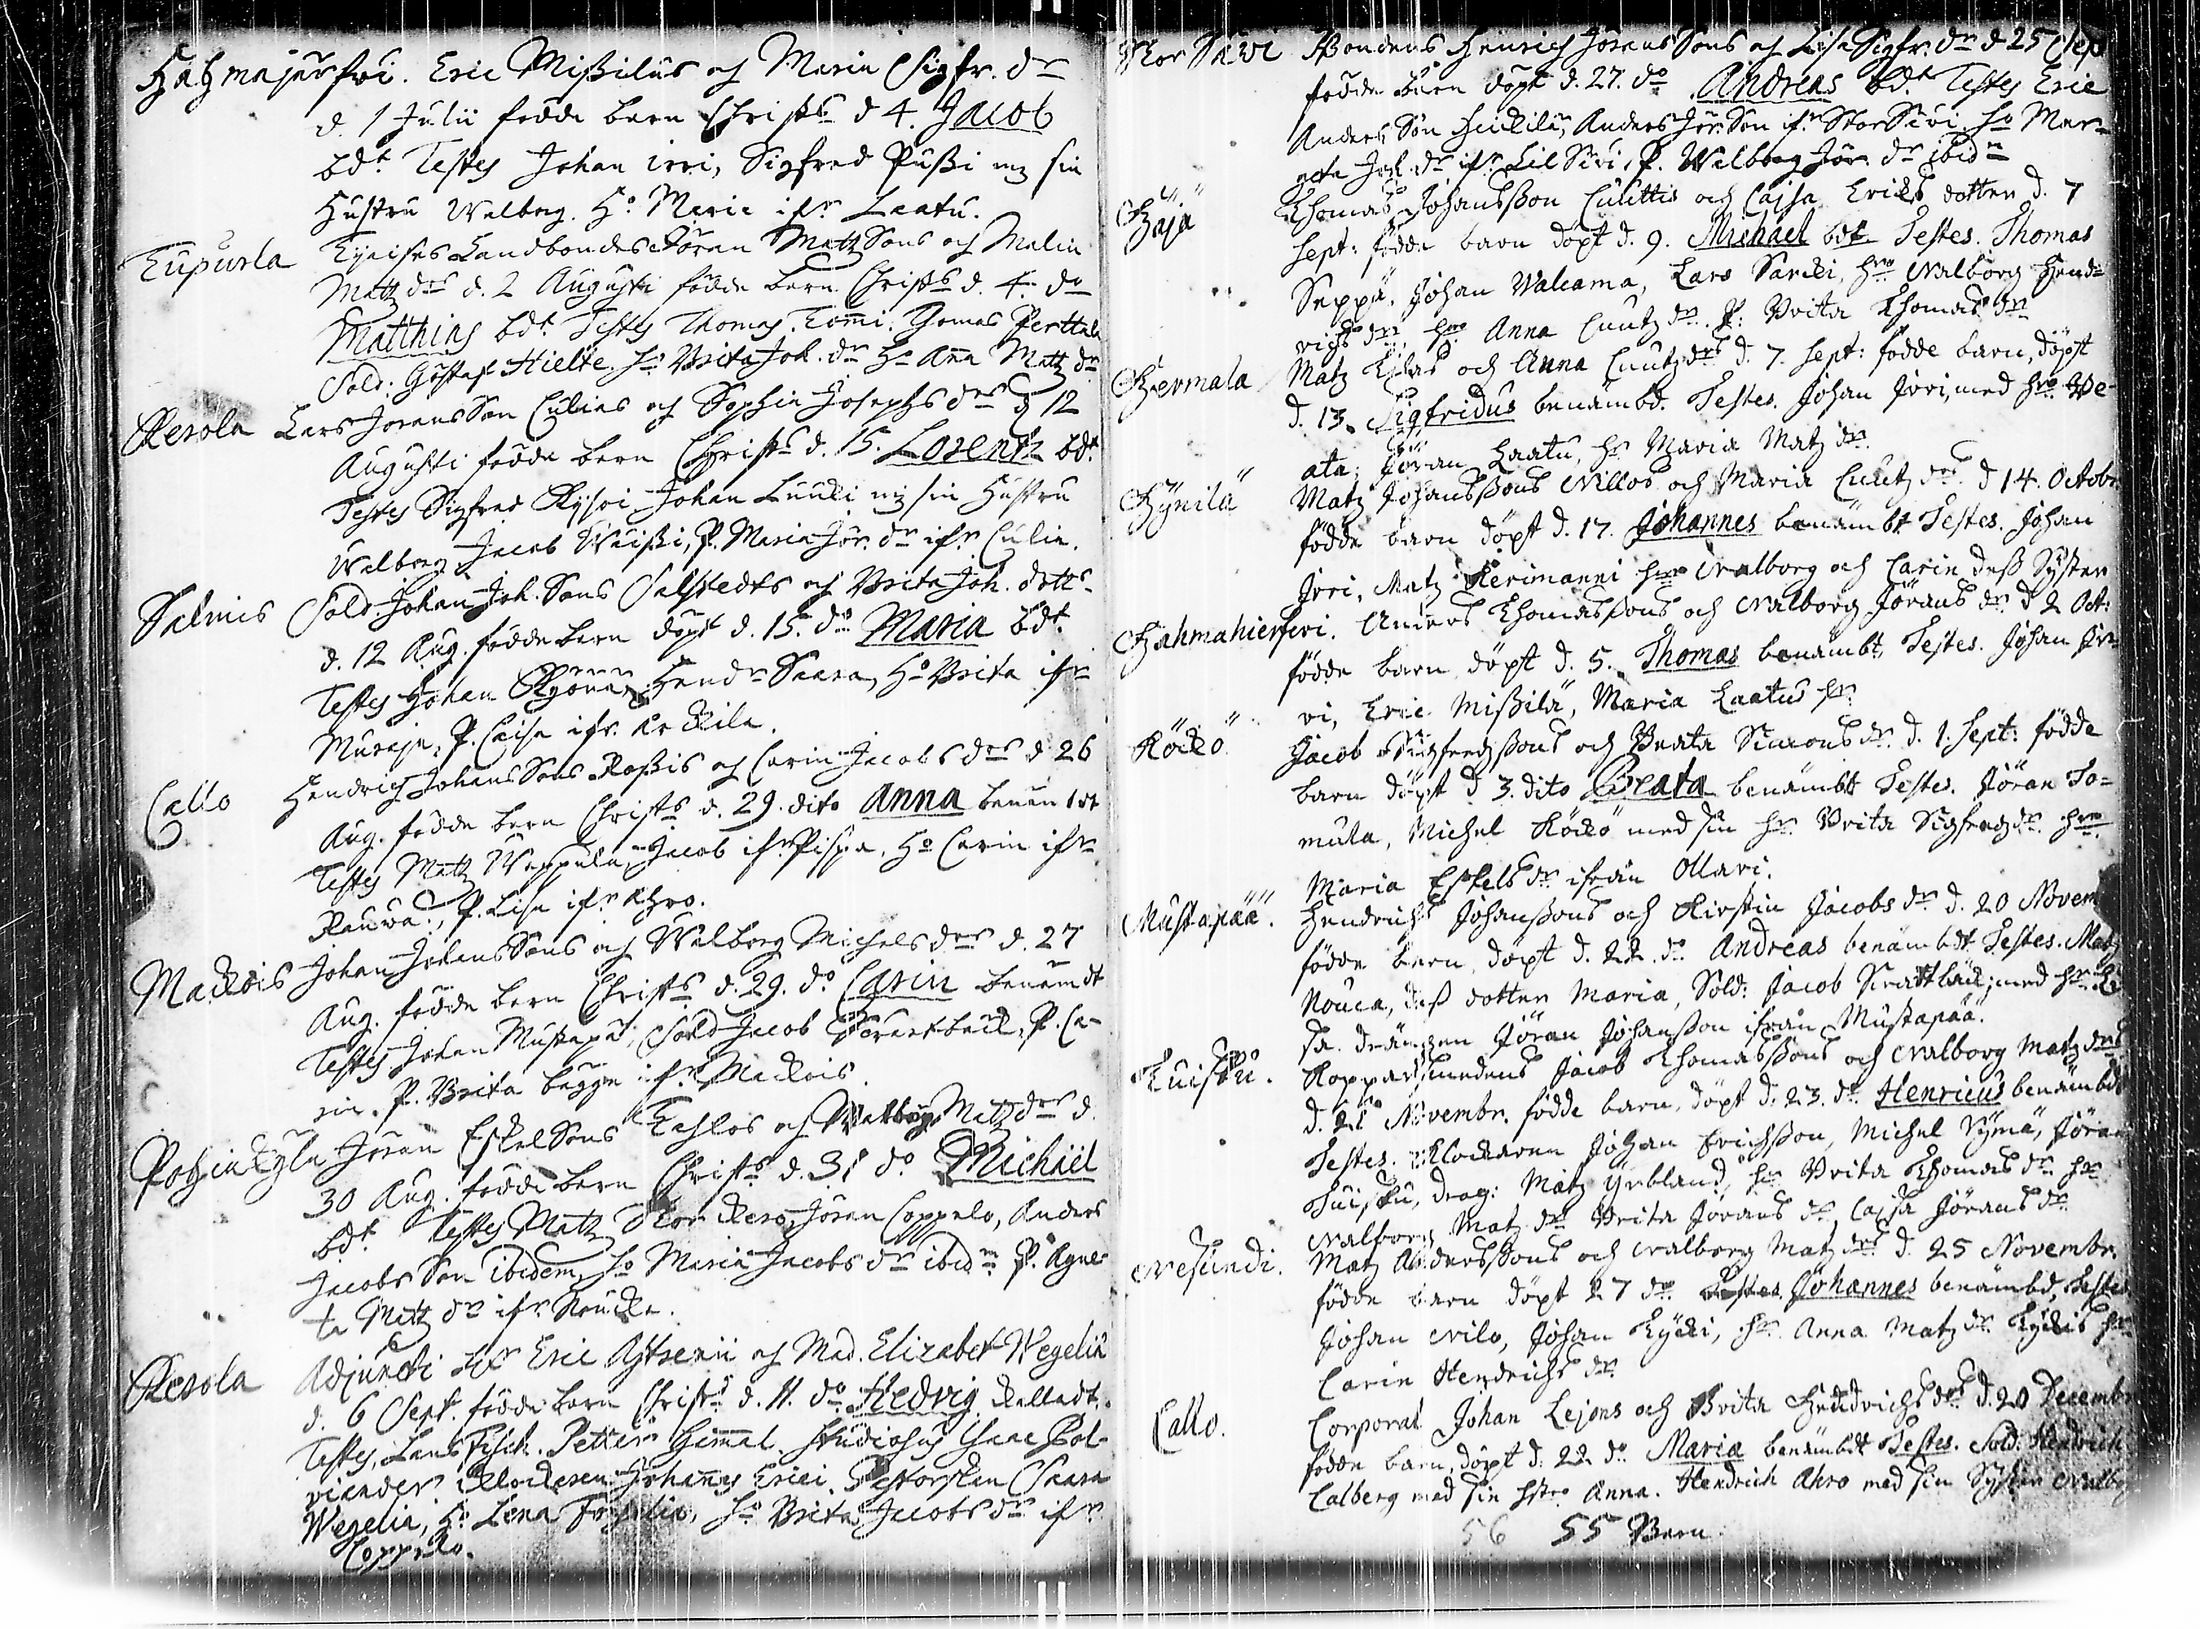 Hahmajärfvi. Eric Mißilus och Maria Sigfr. dr
d. 1 Julii födde barn Christs d 4. Jacob
bdt Testes Johan irri, Sigfred Pußi mz sin
Hustru Walborg. Ho Maria ifr Laatu.
Eupurla Landbondes Jöran Matz Sons och Malin
Matz drs d. 2 Augusti födde barn Christs d. 4. do
Matthias bdt Testes Thomas Tom̃i. Perttala
Sold: Göstaf Hielte. Ho Brita Joh. dr Ho Aña Matz dr
Kerola Lars Jörans Son Culias och Sophia Josephs drs d 12
Augusti födde barn Christs d. 15. Lorentz bdt
Testes Sigfred Johan Luuki mz sin Hustru
Walborg Jacob P. Maria Jör. dr ifr Culia.
Salmis Sold Johan Joh. Sons Salstedts och Brita Joh. dotts
d. 12 Aug. födde barn döpt d. 15. do Maria bdt.
Testes Johan Hendr Saara, Ho Brita ifr
P. Caisa ifr.
Callo Hendrich Johans Sons Roßis och Carin Jacobs drs d 26
Aug. födde barn Christs d. 29. dito Anna benämt
Testes Matz Jacob ifr Pispa. Ho Carin ifr
P. Lisa ifr Ahro.
Mackois Johan Johans Sons och Walborg Michels drs d. 27
Aug. födde barn Christs d. 29. do Carin benämdt
Testes Johan Mustapä, Sold Jacob P. Ca-
rin. P. Brita begge ifr Mackois.
Pohjankylä Jöran Eskel Sons och Walborg Matz drs d.
30 Aug. födde barn Christs d. 31 do Michäel
bdt Testes Matz Jöran Coppelo, Anders
Jacobs Son ibidem. Ho Maria Jacobs dr ibidm P. Agne-
ta Matz dr ifr
Kerola Adjuncti Eric och Mad. Elizabet Wegelia
d. 6 Sept. födde barn Christs d. 11. do Hedvig kalladt.
Testes, Petter Gam̃al. Studiosus Isaac Pol-
viander Klockaren Johannes Erici. Saara
Wegelia, Ho Lena Ho Brita Jacobs dr ifr
Coppelo.
Stor Säri Bondens Henrich Jörans Sons och Lisa Sigfr. dr d 25
födde barn döpt d. 27. do Andreas bdt Testes Eric
Anders Son Anders Jör. Son ifr Stor Säri. Ho Mar-
geta dr ifr Lil Säri, P. Walborg Jör. dr ibidm
Thomas Johansßon Culittis och Cajsa Ericks dotter d. 7
Sept: födde barn döpt d. 9. Michael bdt Testes. Thomas
Seppä. Johan Waleama, Lars Saricki, hro Walborg Hend=
richs dr, hro Anna Cnutz dr. P: Brita Thomas dr
Hermala Matz och Anna Cnutz drs d. 7. Sept: födde barn, döpt
d. 13. Sigfridus benämbd. Testes. Johan Jrri, med hro Be-
ata; Jöran Laatu, hr Maria Matz dr.
Hynilä Matz Johansßons Nillos och Maria Cnutz drs d 14. Octobr
födde barn döpt d. 17. Johannes benämbt Testes. Johan
Jrri, Matz Kerimanni hro Walborg och Carin deß Syster
Hahmahierfvi. Anders Thomasßons och Walborg Jörans dr d 2 Oct:
födde barn döpt d. 5. Thomas benämbt, Testes. Johan Jr=
vi, Eric Mißilä, Maria Laatus hr.
Röckö Jacob Sigfredßons och Beata Simons dr. d. 1. Sept: födde
barn döpt d 3. dito Beata benämbt Testes. Jöran To=
mula, Michel Röckö med sin hr. Brita Sigfredz dr. hro
Maria Eskels dr ifrån Ollari.
Mustapää. Hendrichs Johanßons och Kirstin Jacobs dr d. 20 Novem
födde barn, döpt d. 22. do Andreas benämbdt Testes. Matz
Nouca, deß dotter Maria, Sold: Jacob med hr
sa. drängen Jöran Johanßon ifrån Mustapää.
Tuisku. Kopparsmedens Jacob Thomasßons och Walborg Matz drs
d. 21 Novembr. födde barn, döpt d. 23. do Henricus benämbdt
Testes. Klockaren Johan Erichsßon, Michel Nymä, Jöran
Tuisku, drag: Matz Yrbland, hr Brita Thomas dr hr
Walborg Matz dr Brita Jörans dr, Cajsa Jörans dr
Nesundi. Matz Andersßons och Walborg Matz drs d 25 Novembr.
födde barn döpt 27 do Johannes benämbd, Testes
Johan Nilo, Johan Kycki, hr Anna Matz dr Kyckis hr
Carin Hendrichs dr
Callo. Corporal Johan Lejons och Brita Hendrichs drs d. 20 Decembr
födde barn, döpt d: 22 do Maria benämbdt Testes. Sold. Hendrich
Calberg med sin hstro Anna. Hendrich Ahro med sin Syster Walbo
56 55 Barn